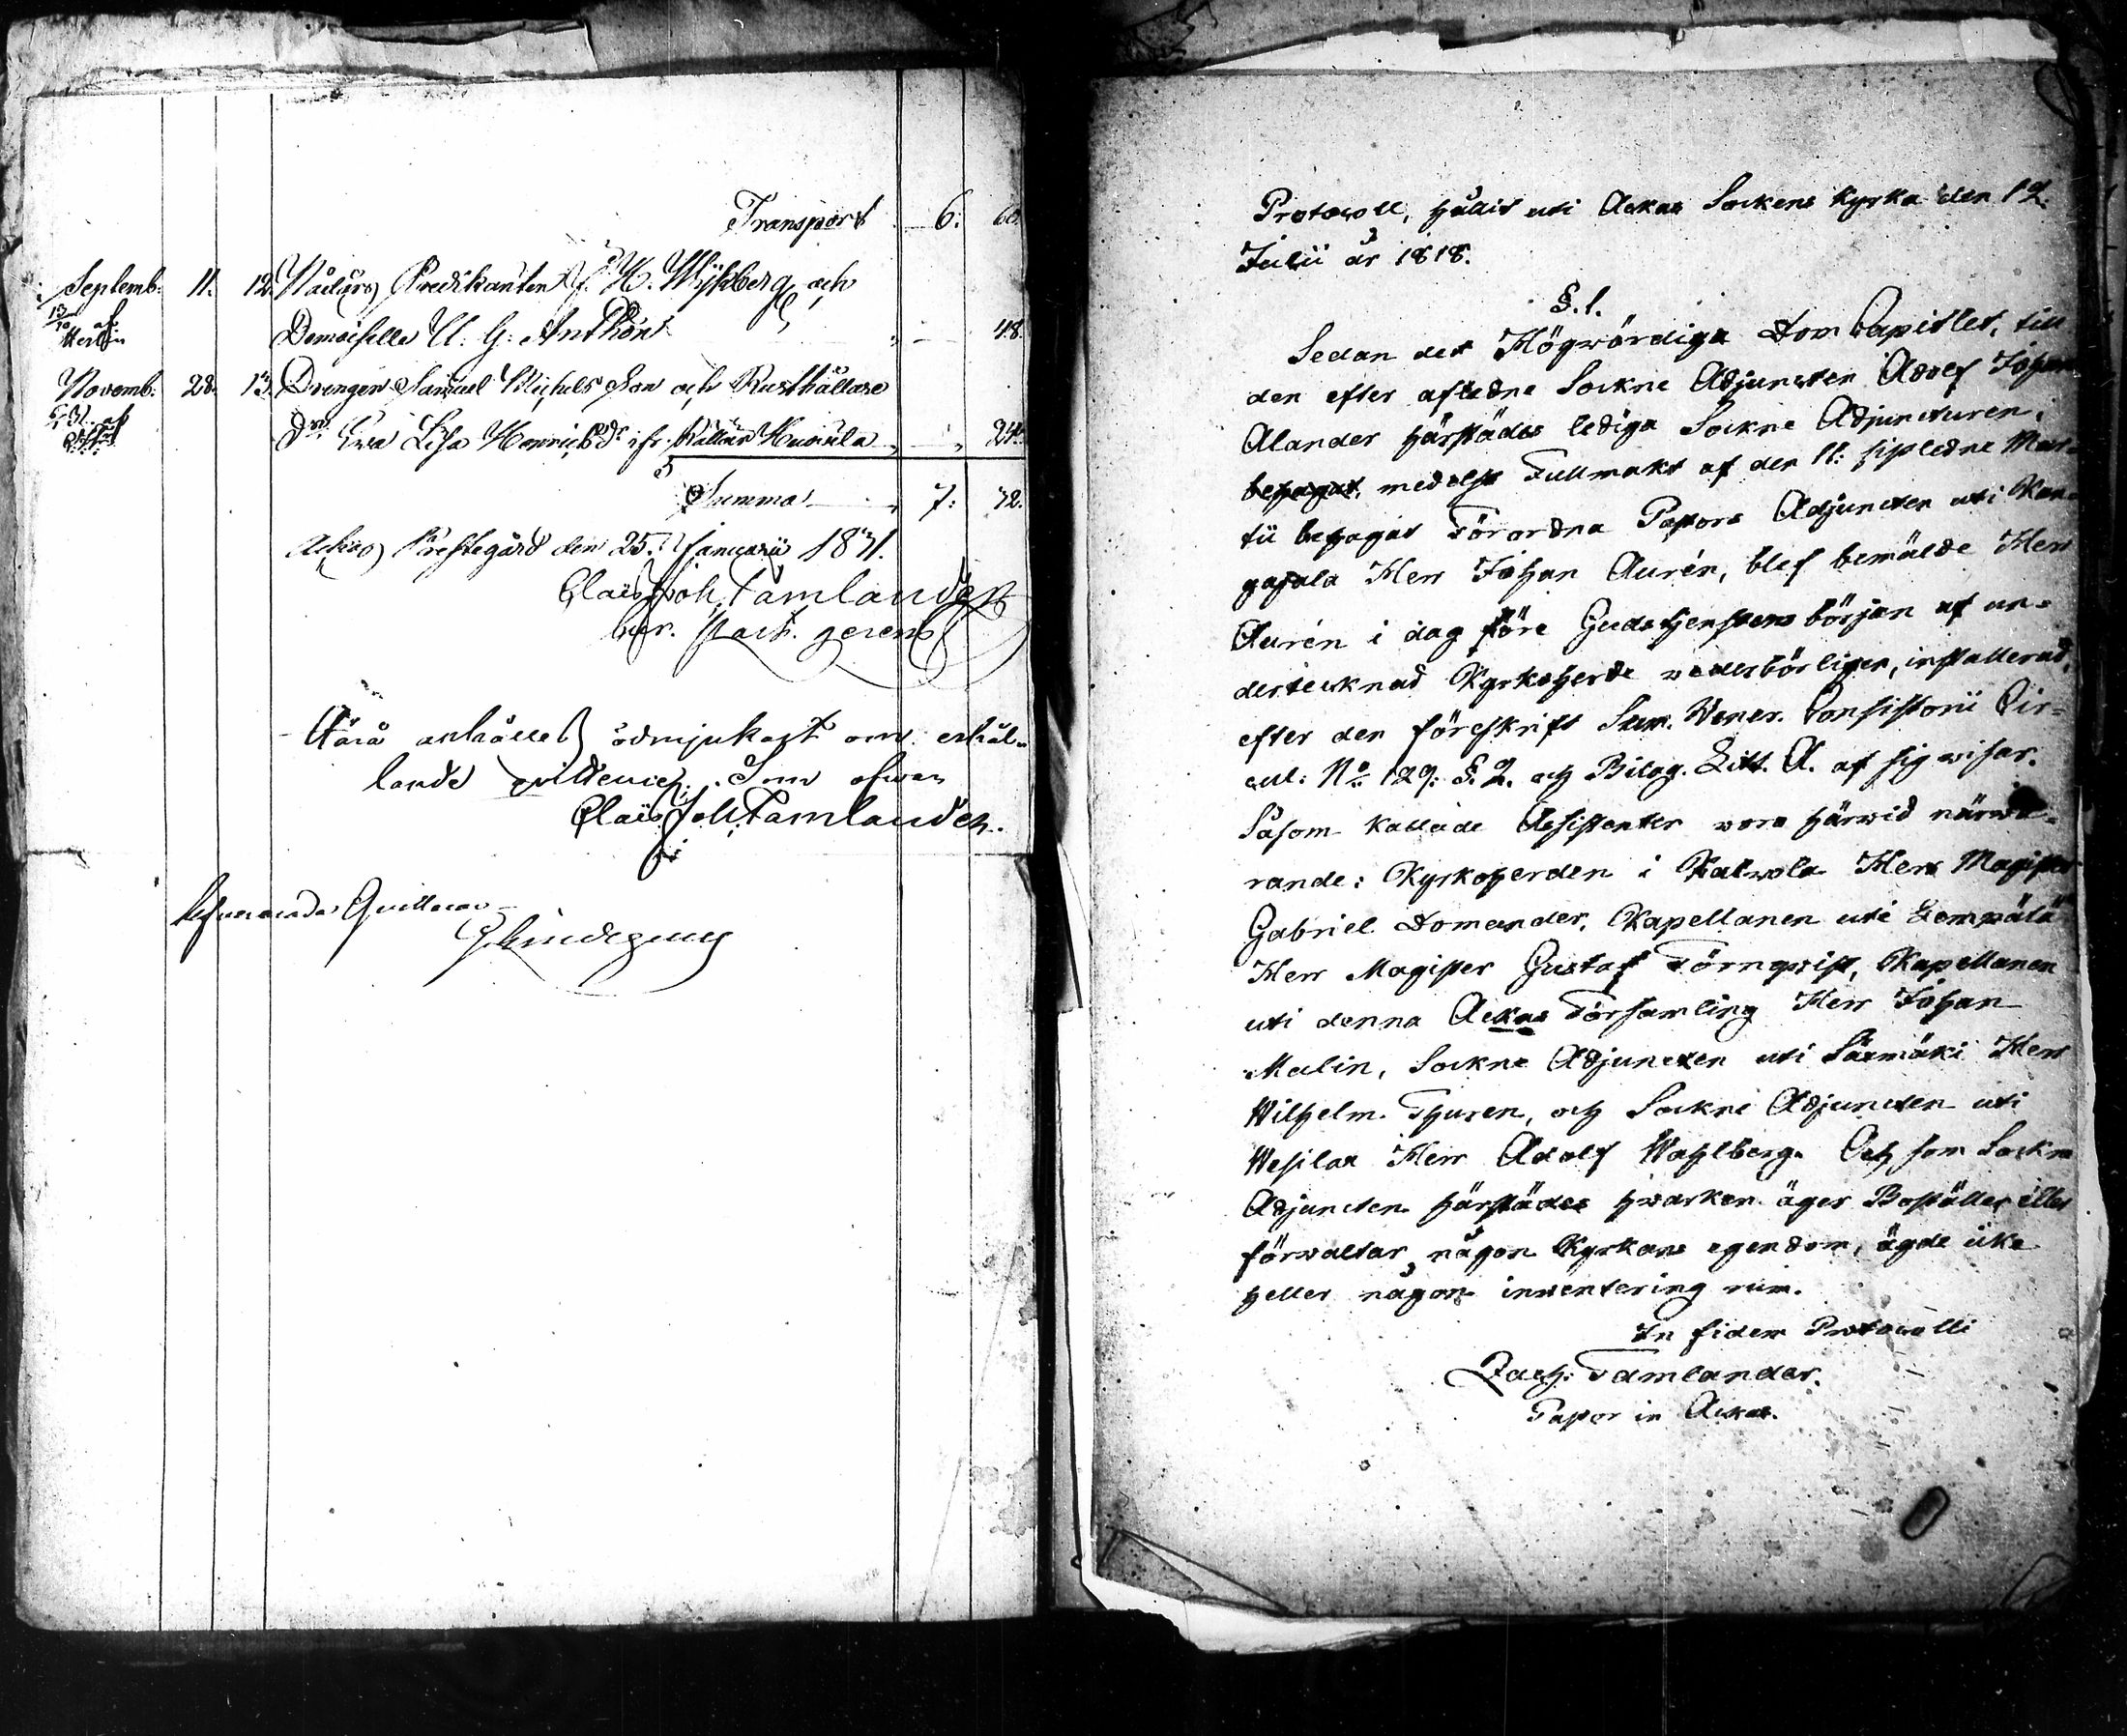 Transport 6: 60.
Septemb: 11. 12. Nådårs Predikanten J. H. Wijkberg och
13/10 af
Demoiselle U. G: Anthôni 48.
Novemb: 28. 13. Drengen Samuel Michels Son och Rusthållare
Dr. Eva Lisa Henrics Dr ifr. Kallari Humala 24.
Summa 7: 32.
Ackas Prestegård den 25. Januarii 1831.
Claës Joh. Tamlander
Past. gerens
Härå anhålles ödmjukast om erhål-
lande quittence. Som ofwan
Claës Joh. Tamlander.
Quitteras
G Lindegren
Protocoll, hållit uti Ackas Sockens Kyrka den 12.
Julii år 1818.
§. 1.
Sedan det Högwördiga Dom Capitlet, till
den efter aflidne Sockne Adjuncten Adolf Johan
Alander härstädes lediga Sockne Adjuncturen,
behagat, medelst Fullmakt af den 11: sistledne Mar-
tii behagat förordna Pastors Adjuncten uti Kan-
gasala Herr Johan Aurén, blef bemälde Herr
Aurén i dag före Gudstjenstens början af un-
dertecknad Kyrkoherde wederbörligen, installerad,
efter den föreskrift Sum. Vener. Consistorii Cir-
cul: No. 129: §. 2. och Bilag. Litt. A. af sig wisar.
Såsom kallade Assistenter woro härwid närwa-
rande: Kyrkoherden i Kalwola Herr Magister
Gabriel Domander, Kapellanen uti Lempälä
Herr Magister Gustaf Törnqvist, Kapellanen
uti denna Ackas Församling Herr Johan
Malin, Sockne Adjuncten uti Säxmäki Herr
Wilhelm Thuren, och Sockne Adjuncten uti
Wesilax Herr Adolf Wahlberg. Och som Sockne
Adjuncten härstädes hwarken äger Boställe eller
förwaltar någon Kyrkans egendom, ägde icke
heller någon inventering rum.
In fidem Protocolli
Zach: Tamlander.
Pastor in Ackas.